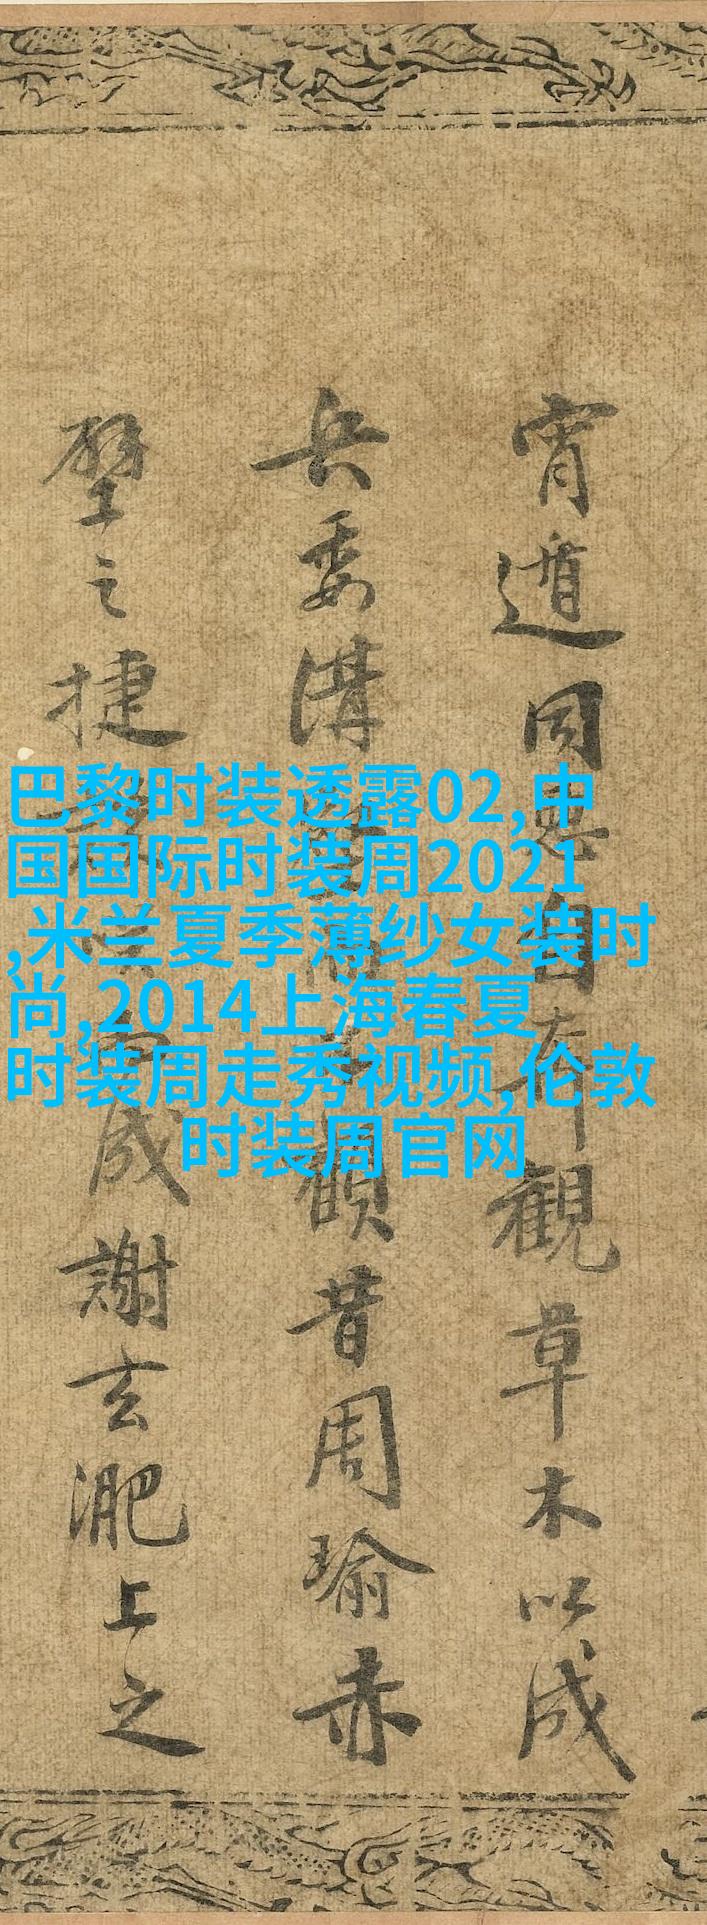 宵遁同惡自奔觀草木以成
兵委溝壑而不顧昔周瑜赤
壁之捷談笑而成謝玄淝上之
巴黎时装透露02,中
国国际时装周2021
,米兰夏季薄纱女装时
尚,2014上海春夏
时装周走秀视频,伦敦
时装周官网